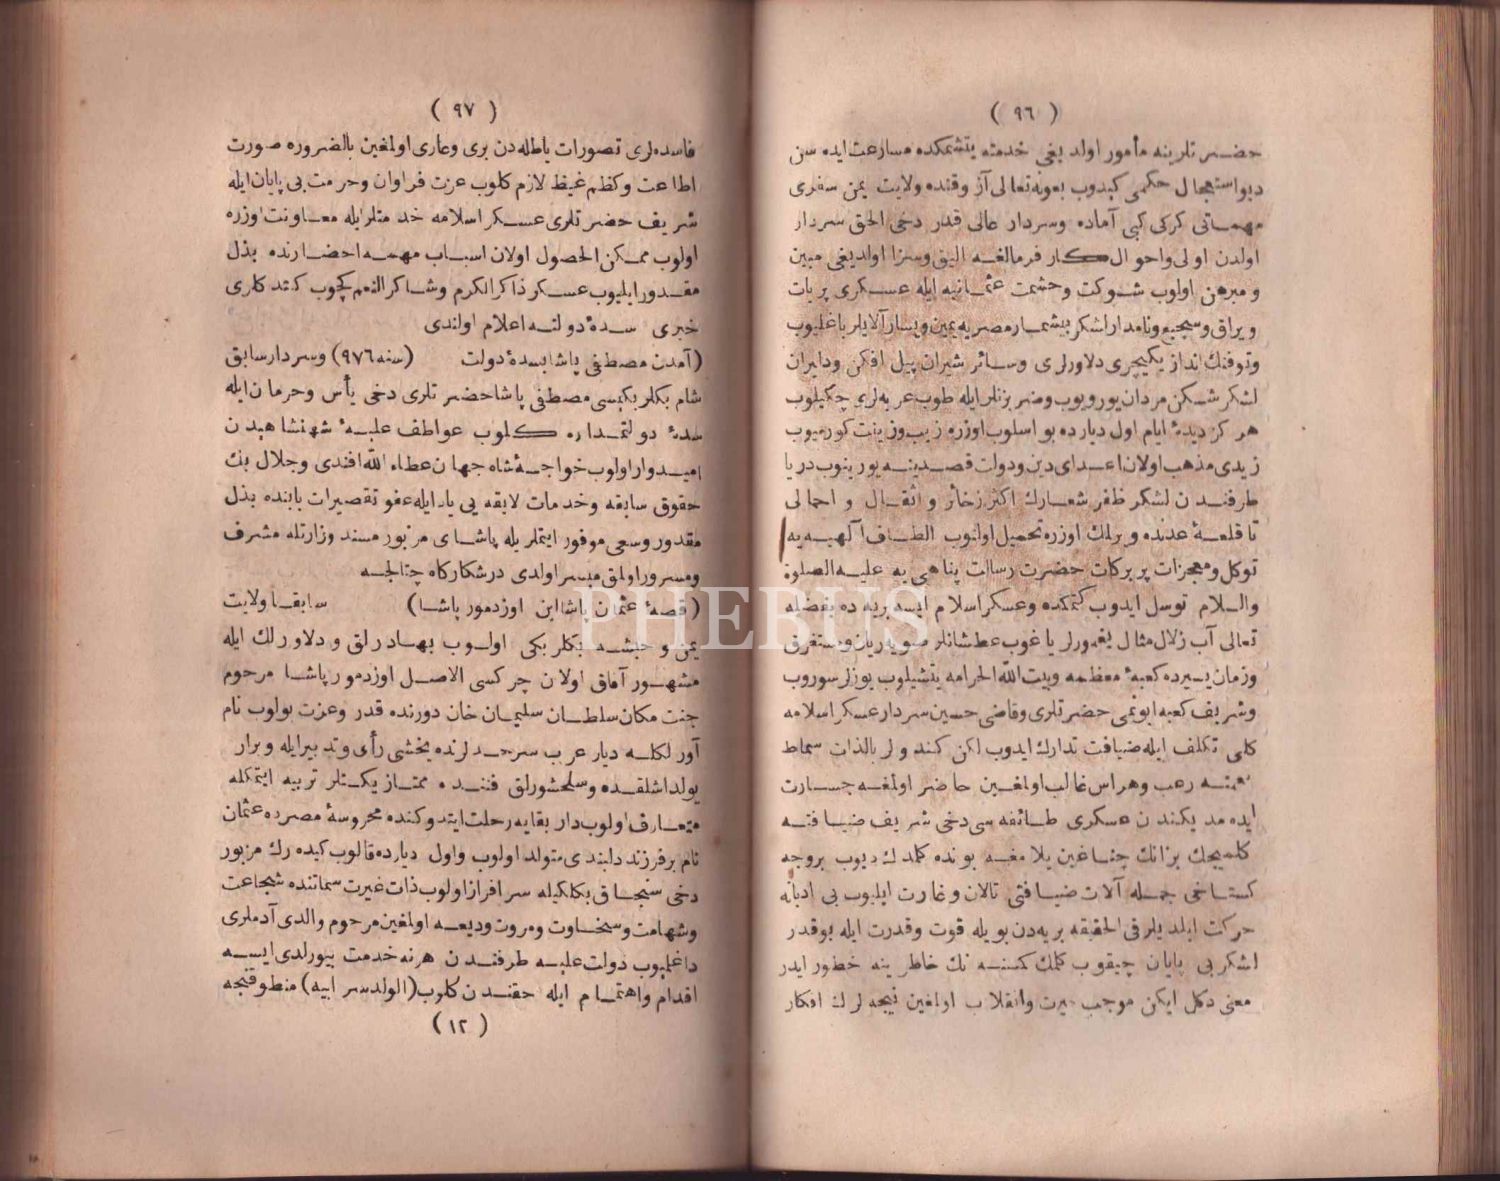 ( ٩٦ )
حضرتلرينه مأمور اولديغى خدمته يتشمكده مسارعت ايده سن
ديو استعجال حكمى كيدوب بعونه تعالى آز وقتده ولايت يمن سفرى
مهماتى كركى كبى آماده وسردار عالى قدر دخى الحق سردار
اولدن اولى واحوال كار فرمالغه اليق وسزا اولديغى مبين
و مبرهن اولوب شوكت وحشمت عثمانيه ايله عسكرى پر يات
ويراق وسجيع ونامدار لشكر بيشمار مصريه يمين ويسار آلايلر باغليوب
وتوفنك انداز يكيچرى دلاورلرى وسائر شيران پيل افكن ودليران
لشكر شكن مردان يوروبوب وضربزنلر ايله طوب عربه لرى چكيلوب
هركز ديدهٔ ايام اول ديارده بو اسلوب اوزره زيب وزينت كورميوب
زيدى مذهب اولان اعداى دين ودولت قصدينه يورينوب دريا
طرفندن لشكر ظفر شعارك اكثر ذخائر و اثقال و احمالى
تا قلعهٔ عدنده ويرلمك اوزره تحميل اولنوب الطاف آلهيه يه
توكل ومعجزات پر بركات حضرت رسالت پناهى يه عليه الصلوة
والسلام توسل ايدوب كتمكده وعسكر اسلام ايسه بريه ده بفضله
تعالى آب زلال مثال يغمورلر ياغوب عطشانلر صويه ريان ومستغرق
وزمان يسيرده كعبهٔ معظمه وبيت الله الحرامه يتشيلوب يوزلر سوروب
وشريف كعبه ابونمى حضرتلرى وقاضى حسين سردار عسكر اسلامه
كلى تكلف ايله ضيافت تدارك ايدوب لكن كندولر بالذات سماط
رعب وهراس غالب اولمغين حاضر اولمغه جسارت
ايده مديكندن عسكرى طائفه سى دخى شريف ضيافته
كلميجك بزانك چناغين يلامغه بونده كلمدك ديوب بروجه
كستاخى جمله آلات ضيافتى تالان وغارت ايليوب بى ادبانه
حركت ايلديلر فى الحقيقه بريه دن بويله قوت وقدرت ايله بوقدر
لشكر بى پايان چيقوب كلمك كمسنه نك خاطرينه خطور ايدر
معنى دكل ايكن موجب حيرت وانقلاب اولمغين نيجه لرك افكار
( ٩٧ )
فاسده لرى تصورات باطله دن برى وعارى اولمغين بالضروره صورت
اطاعت وكظم غيظ لازم كلوب عزت فراوان وحرمت بى پايان ايله
شريف حضرتلرى عسكر اسلامه خدمتلر يله معاونت اوزره
اولوب ممكن الحصول اولان اسباب مهمه احضارنده بذل
مقدور ايليوب عسكر ذاكر الكرم وشاكر النعم كچوب كتدكلرى
خبرى سدهٔ دولته اعلام اولندى
(آمدن مصطفى پاشا بسدهٔ دولت (سنه ٩٧٦) وسردار سابق
شام بكلربكيسى مصطفى پاشا حضرتلرى دخى يأس وحرمان ايله
سدهٔ دولتمداره كلوب عواطف عليهٔ شهنشاهيدن
اميدوار اولوب خواجهٔ شاه جهان عطاء الله افندى وجلال بك
حقوق سابقه وخدمات لايقه يى ياد ايله عفو تقصيرات بابنده بذل
مقدور وسعى موفور ايتملريله پاشاى مزبور مسند وزارتله مشرف
ومسرور اولمق ميسر اولدى در شكاركاه چتالجه
(قصهٔ عثمان پاشا ابن اوزدمور پاشا) سابقا ولايت
يمن وحبشه بكلربكى اولوب بهادرلق و دلاورلك ايله
مشهور آفاق اولان چركسى الاصل اوزدمور پاشا مرحوم
جنت مكان سلطان سليمان خان دورنده قدر وعزت بولوب نام
آورلكله ديار عرب سرحدلرنده يخشى رأى وتدبير ايله و يرار
يولداشلقده وسلحشورلق فننده ممتاز يكتلر تربيه ايتمكله
متعارف اولوب دار بقايه رحلت ايتدوكنده محروسهٔ مصرده عثمان
نام بر فرزند دلبندى متولد اولوب واول ديارده قالوب كيده رك مزبور
دخى سنجاق بكلكيله سرافراز اولوب ذات غيرت سماتنده شجاعت
وشهامت وسخاوت ومروت وديعه اولمغين مرحوم والدى آدملرى
داغلميوب دولت عليه طرفندن هر نه خدمت بيورلدى ايسه
اقدام واهتمام ايله حقندن كلوب (الولد سر ابيه) منطوقنجه
( ١٢ )
PHEBUS